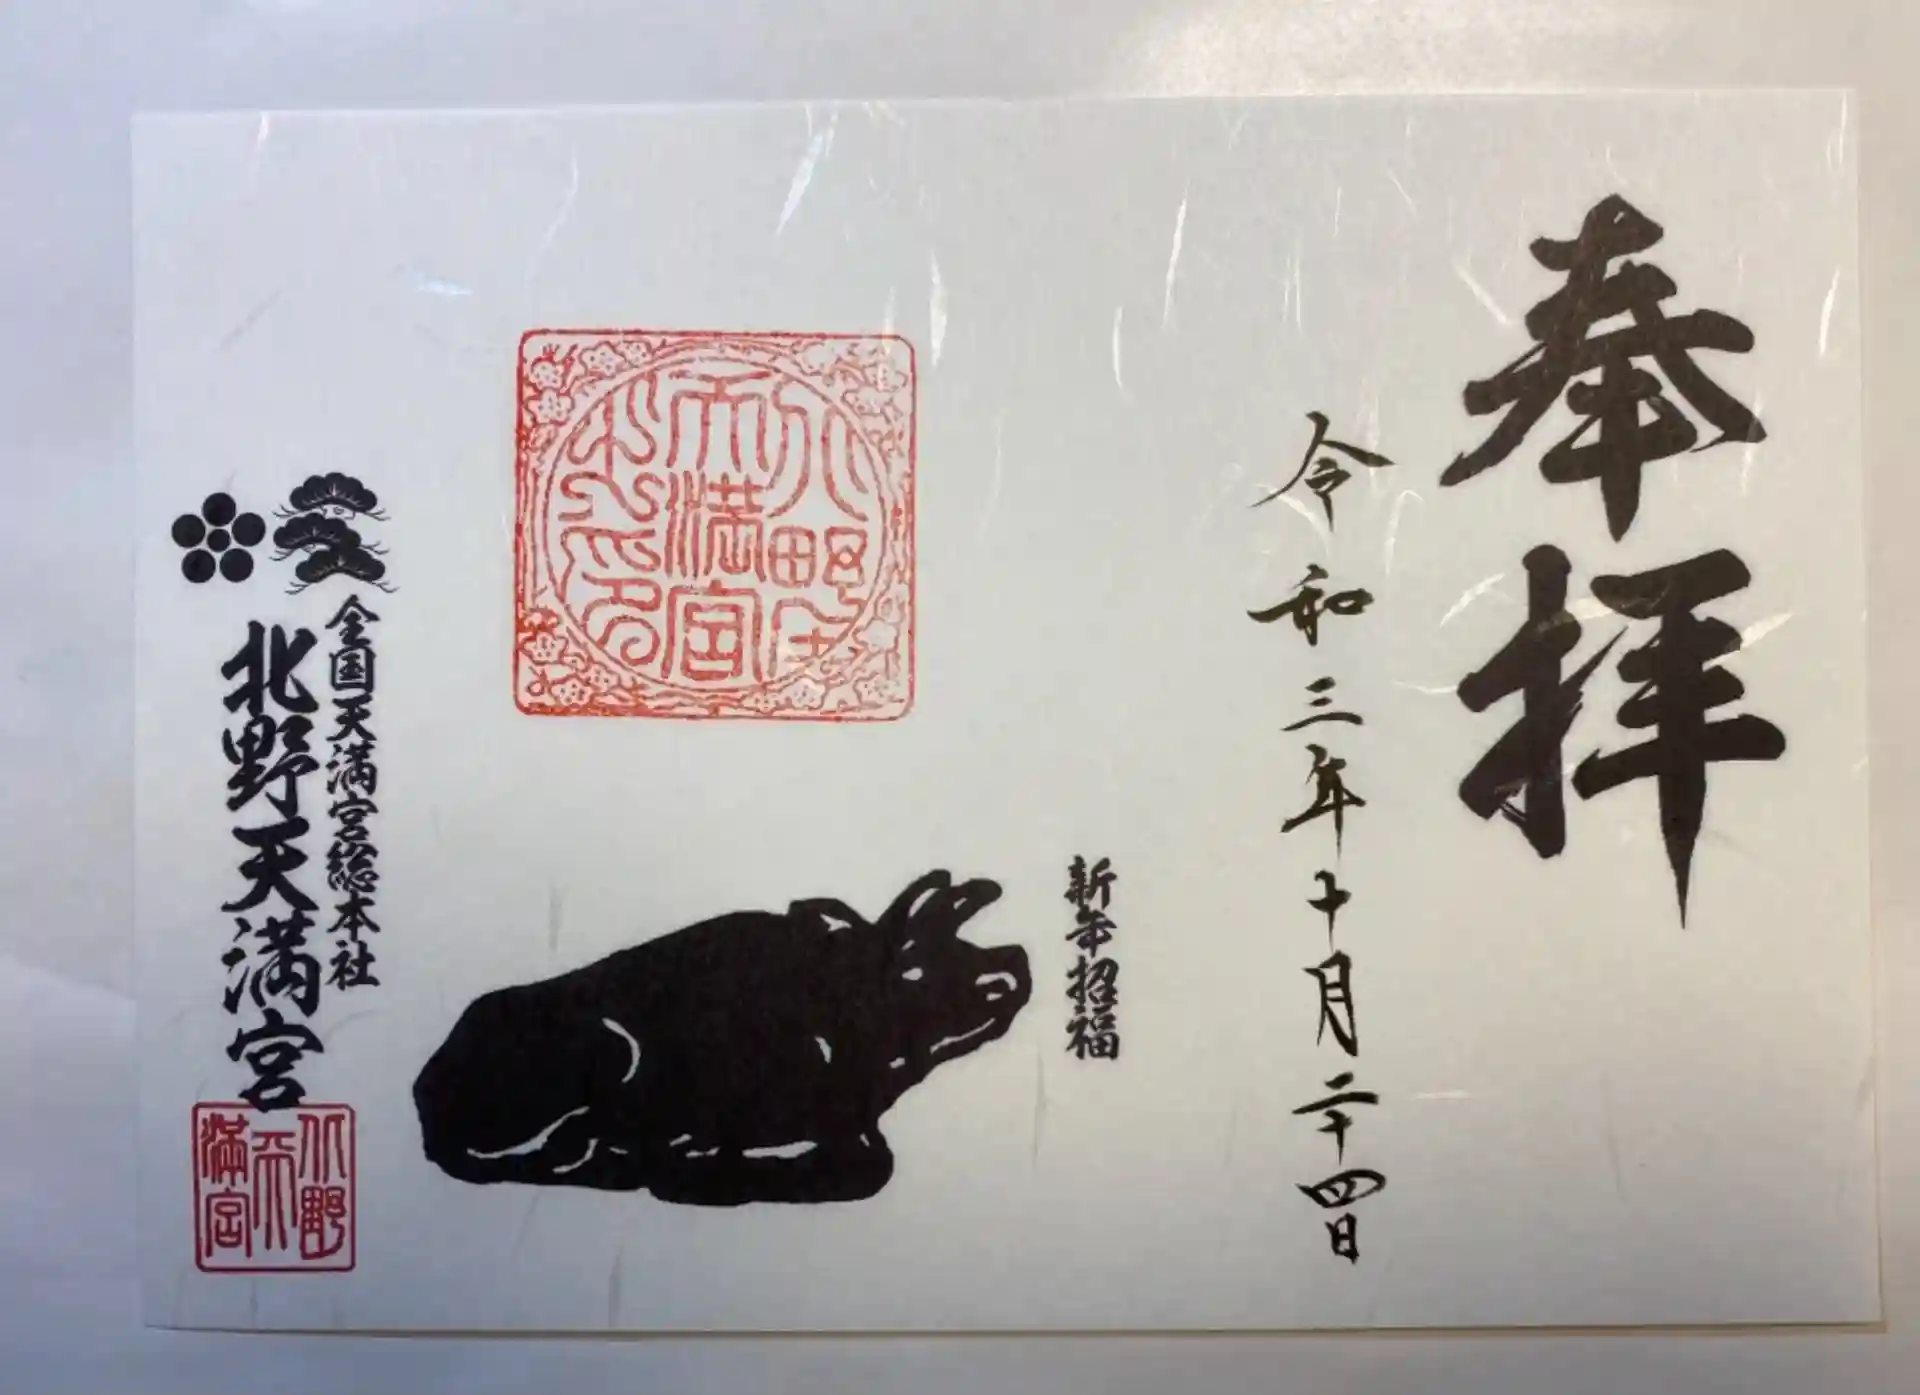 奉拝
令和三年十月二十四日
新年招福
北野天満宮
全国天満宮総本社
北野天満宮
北野天満宮